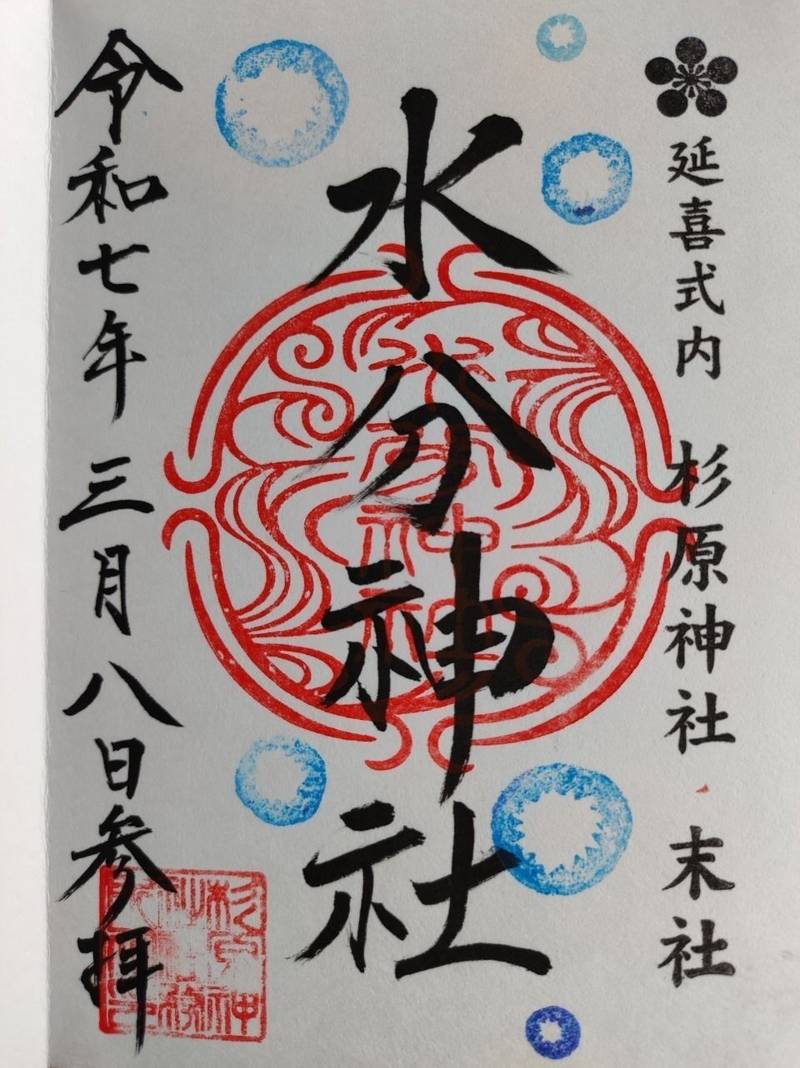 延喜式内 杉原神社 末社
水分神社
令和七年三月八日参拝